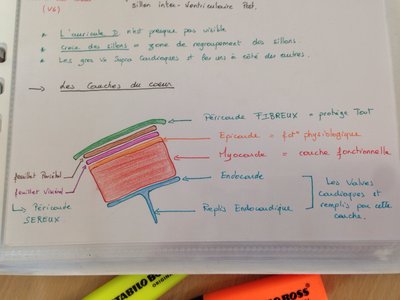 (V6)
sillon inter-Ventriculaire Post.
* L'auricule D n'est presque pas visible
* Croix des sillons = zone de regroupement des sillons.
* Les gros Vx Supra Cardiaques et les uns à côté des autres.
→ Les Couches du coeur
Péricarde FIBREUX = protège Tout
Epicarde = fct° physiologique
Myocarde = couche fonctionnelle
feuillet Pariétal
feuillet Viscéral
Endocarde
Les Valves
Cardiaques et
remplis par cette
couche.
↳ Péricarde
SEREUX.
Replis Endocardique
STABILO BOSS
ORIGINAL
BOSS